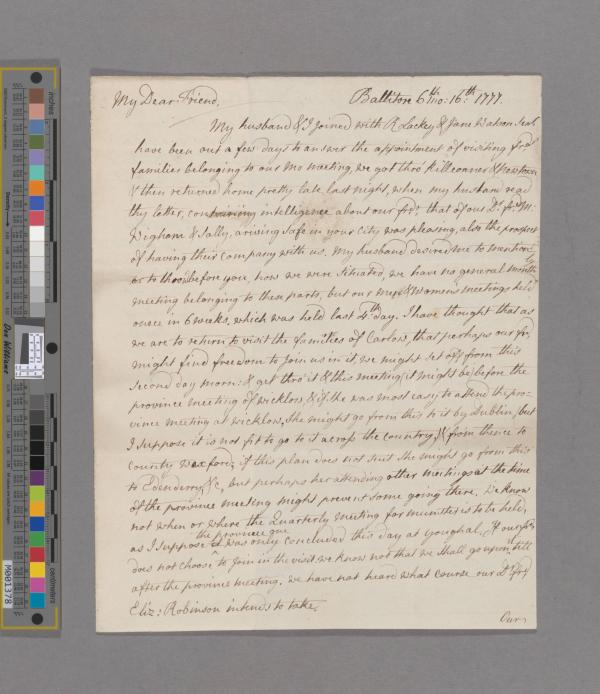 My Dear Friend, Ballitore 6th mo: 16th: 1777.
My husband & I Joined with R Lackey & Jane Watson
have been out a few days to answer the appointment of visiting frds
families belonging to our mo meeting, we got thro' Killconner & Newtown
& then returned home pretty late last night, when my husband read
thy letter, containing intelligence about our frds; that of our Dr. frds M:
Bigham & Sally, arriving safe in your City was pleasing, also the prospect
of having their company with us. My husband desired me to mention
to thee before you, how we were situated, we have no general monthly
meeting belonging to these parts, but our men & women's meetings held
once in 6 weeks, which was held last 4th day. I have thought that as
we are to return to visit the families of Carlow, that perhaps our frds
might find freedom to Join us in it we might set off from this
second day morn: & get thro' it & this meeting (it might be) before the
province meeting of Wicklow, & if she was most easy to attend the pro-
vince meeting at Wicklow, she might go from this to it by Dublin, (but
I suppose it is not fit to go to it across the country) & from thence to
county Wexford; if this plan does not suit she might go from this
to Edenderry, &c, but perhaps her attending other meetings at the time
of the province meeting might prevent some going there, we know
not when or where the Quarterly meeting for munster is to be held,
as I suppose the province one was only concluded this day at youghal. If our frds
does not choose to Join in the visit we know not that we shall go upon it till
after the province meeting, we have not heard what course our Dr frd
Eliz: Robinson intends to take.
Our
inches
centimeters
Don Williams
M001378